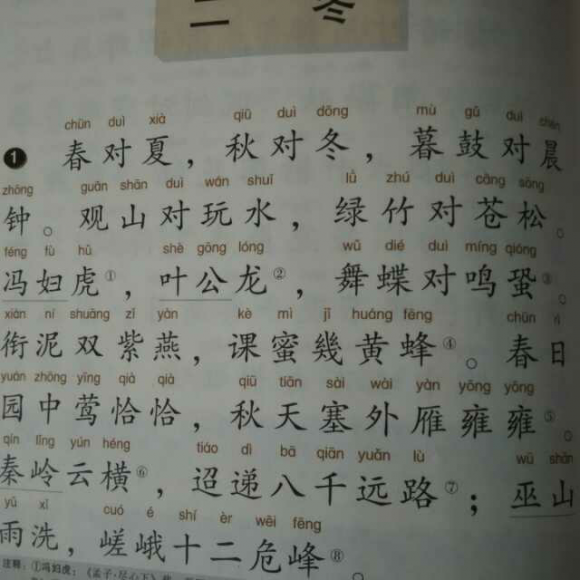 二 冬
chūn duì xià qiū duì dōng mù gǔ duì chén
❶ 春对夏，秋对冬，暮鼓对晨
zhōng guān shān duì wán shuǐ lǜ zhú duì cāng sōng
钟。观山对玩水，绿竹对苍松。
féng fù hǔ shè gōng lóng wǔ dié duì míng qióng
冯妇虎①，叶公龙②，舞蝶对鸣蛩③。
xián ní shuāng zǐ yàn kè mì jǐ huáng fēng chūn rì
衔泥双紫燕，课蜜幾黄蜂④。春日
yuán zhōng yīng qià qià qiū tiān sài wài yàn yōng yōng
园中莺恰恰，秋天塞外雁雍雍⑤。
qín lǐng yún héng tiáo dì bā qiān yuǎn lù wū shān
秦岭云横⑥，迢递八千远路⑦；巫山
yǔ xǐ cuó é shí èr wēi fēng
雨洗，嵯峨十二危峰⑧。
注释：①冯妇虎：《孟子·尽心下》